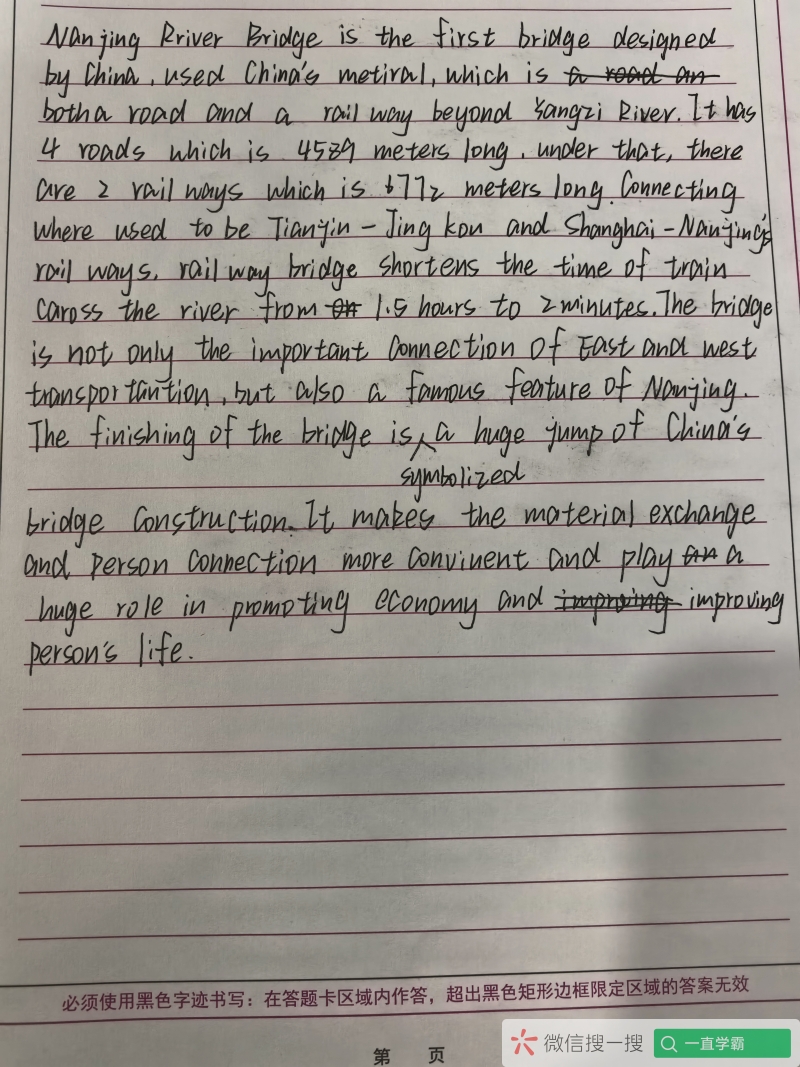 Nanjing Rriver Bridge is the first bridge designed
by China, used China's metiral, which is a road an
both a road and a railway beyond Yangzi River. It has
4 roads which is 4589 meters long, under that, there
are 2 railways which is 6772 meters long. Connecting
where used to be Tianjin-Jing kou and Shanghai-Nanjing's
railways, railway bridge shortens the time of train
caross the river from 1.5 hours to 2 minutes. The bridge
is not only the important connection of East and west
transportantion, but also a famous feature of Nanjing.
The finishing of the bridge is a huge jump of China's
symbolized
bridge construction. It makes the material exchange
and person connection more convinent and play an a
huge role in promoting economy and improving improving
person's life.
必须使用黑色字迹书写：在答题卡区域内作答，超出黑色矩形边框限定区域的答案无效
第 页
微信搜一搜 一直学霸